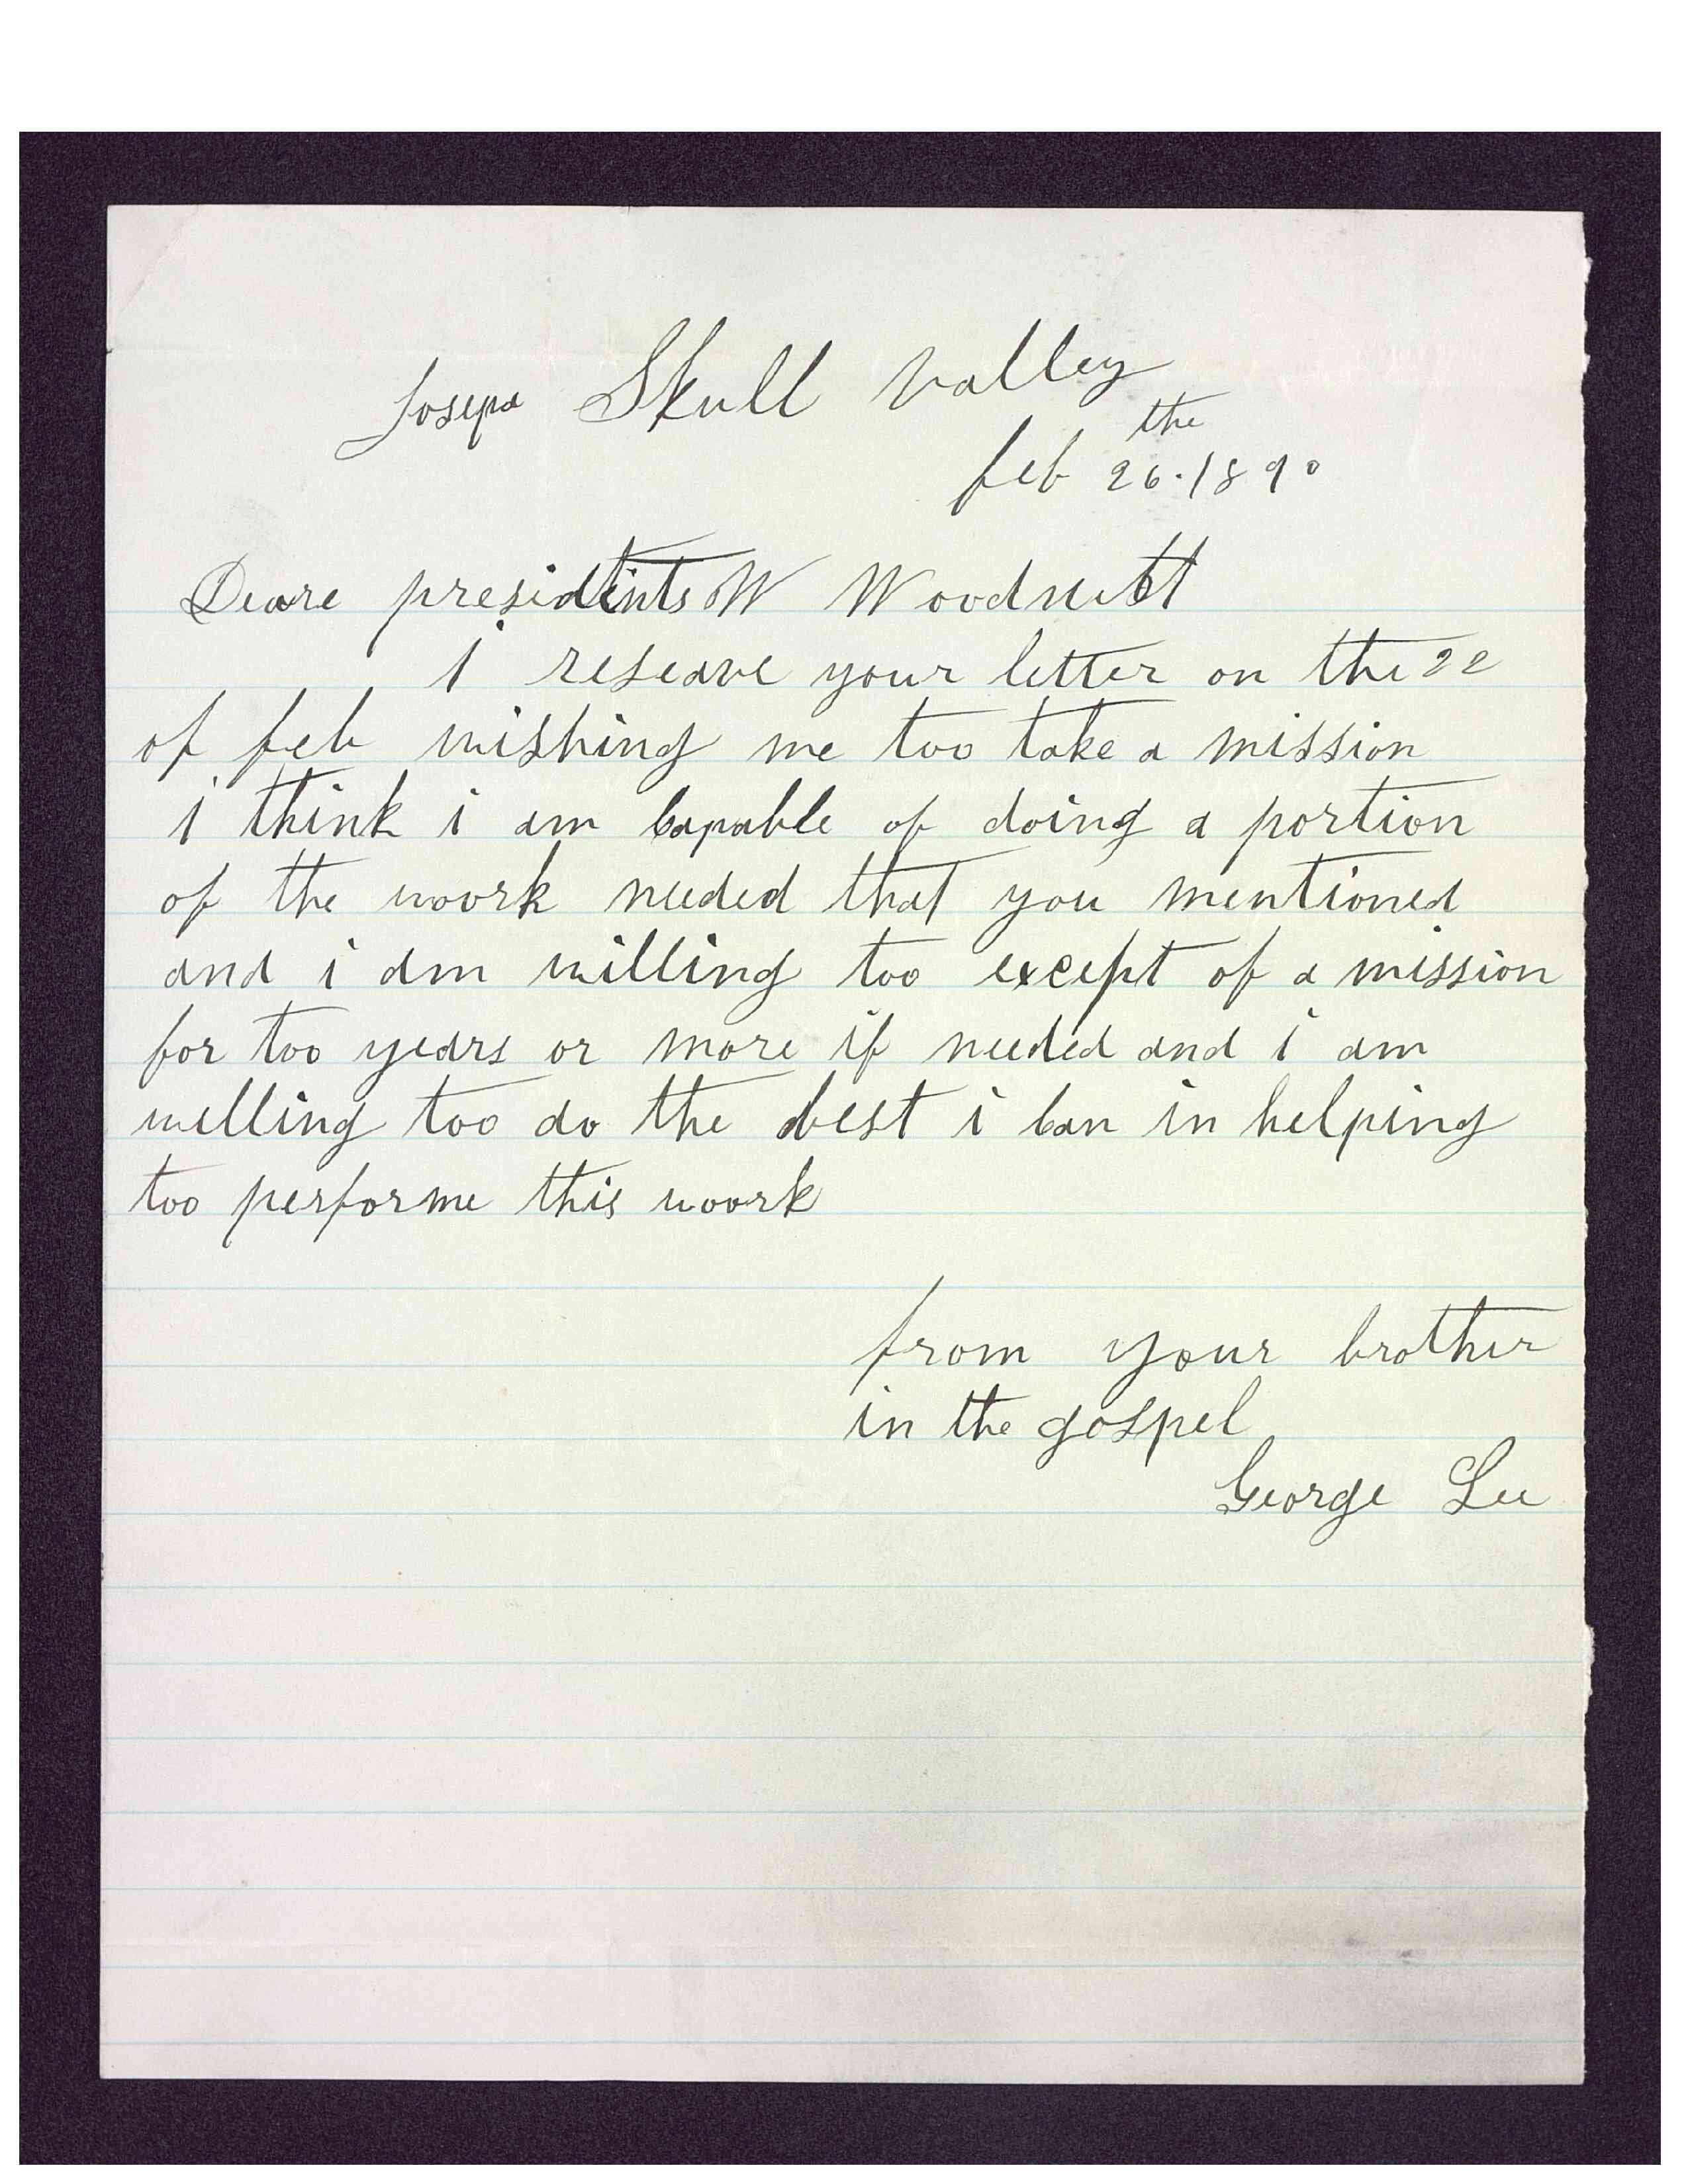 Josepa Skull valley
the
feb 26.1890
Deare presidints W Woodrutt
i reseave your letter on the 22
of feb wishing me too take a mission
i think i am capable of doing a portion
of the woork needed that you mentioned
and i am willing too except of a mission
for too years or more if needed and i am
willing too do the best i can in helping
too performe this woork
from your brother
in the gospel
George Lee